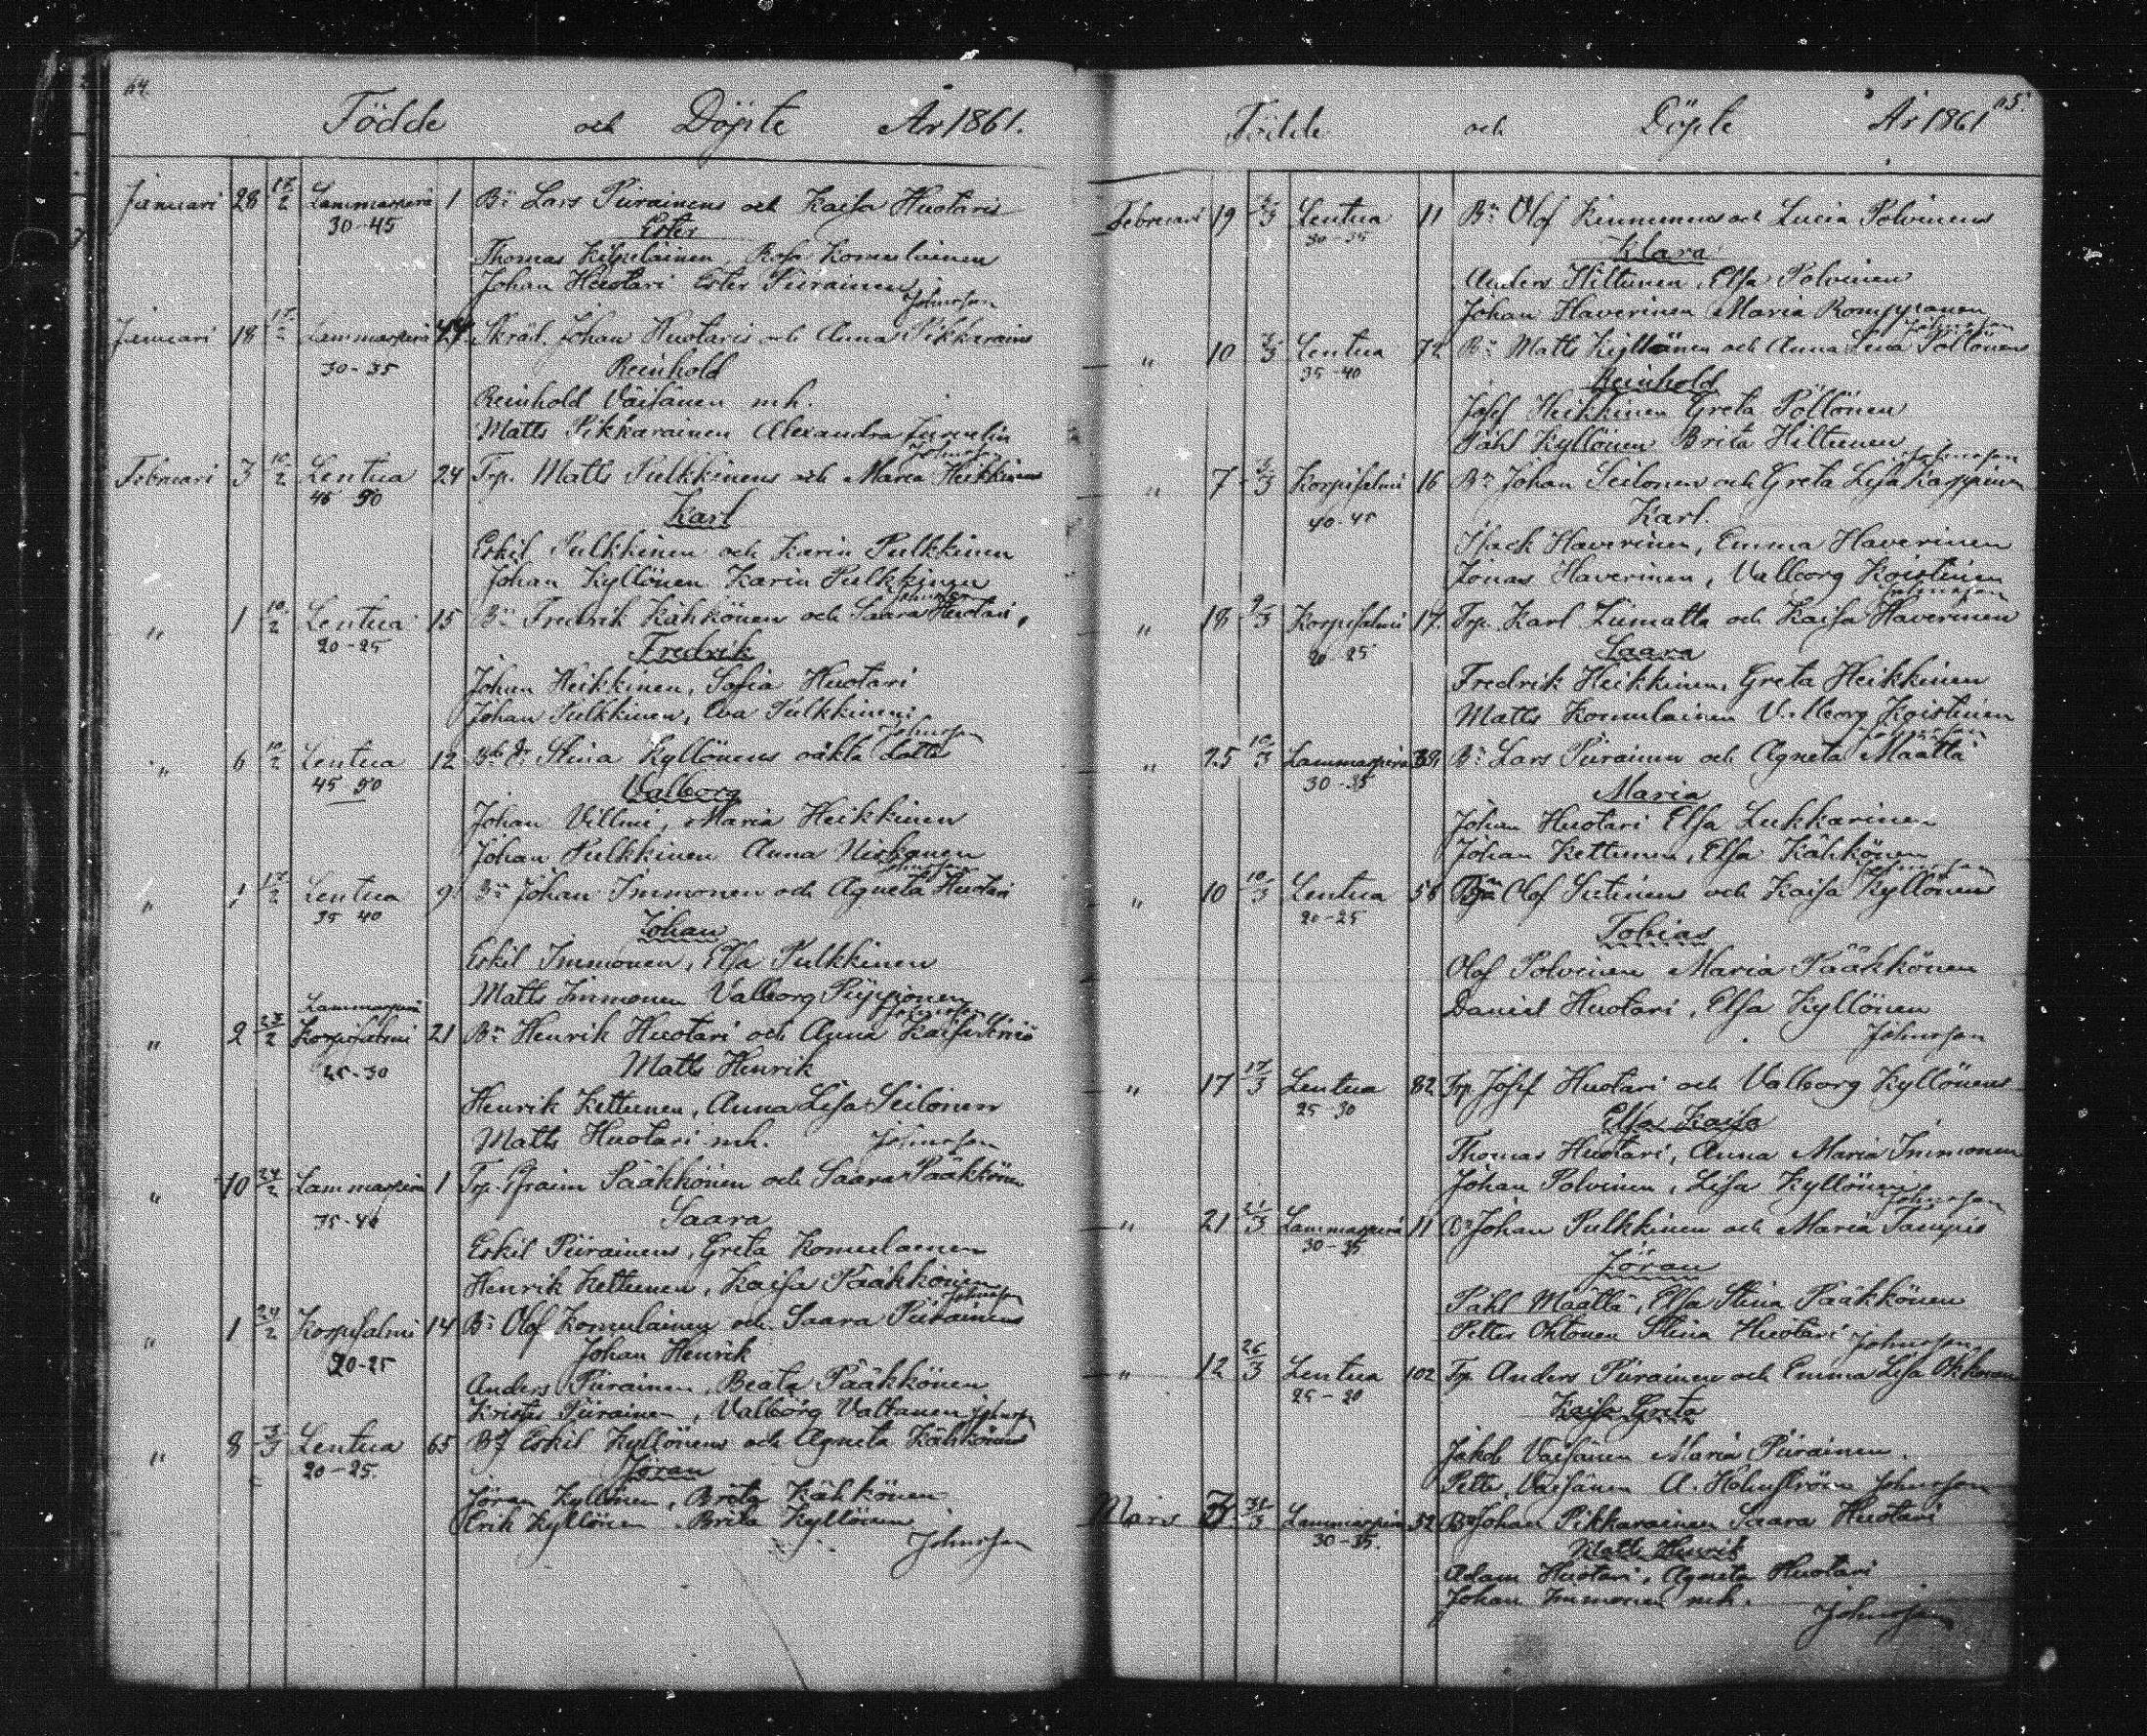 64.
Födde och Döpte År 1861.
Januari 28 17/2 Lammasperä 1 Bn Lars Piirainens och Kaisa Huotaris
30-45 Ester
Thomas Kilpeläinen, Rosa Komulainen
Johan Huotari Ester Piirainen
Johnsson
Januari 18 17/2 Lammasperä Skräd. Johan Huotaris och Anna Pikkarains
30-35 Reinhold
Reinhold Väisänen m.h.
Matts Pikkarainen Alexandra
Johnsson
Februari 3 10/2 Lentua 24 Trp. Matts Pulkkinens och Maria Heikkinens
45 50 Karl
Eskil Pulkkinen och Karin Pulkkinen
Johan Kyllönen Karin Pulkkinen
Johnsson
" 1 10/2 Lentua 15 Bn Fredrik Kähkönen och Saara Huotari,
20-25 Fredrik
Johan Heikkinen, Sofia Huotari
Johan Pulkkinen, Eva Pulkkinen
Johnsson
" 6 10/2 Lentua 12 Stina Kyllönens oäkta
45-50 Valborg
Johan Villmi, Maria Heikkinen
Johan Pulkkinen Anna Niskanen
Johnsson
" 1 17/2 Lentua 9 Bn Johan Immonen och Agneta Huotari
35 40 Johan
Eskil Immonen, Elsa Pulkkinen
Matts Immonen Valborg Piipponen
Johnsson
Lammasperä
" 2 23/2 Korpisalmi 21 Bn Henrik Huotari och Anna Kaisa
25-30 Matts Henrik
Henrik Kettunen, Anna Lisa Seilonen
Matts Huotari m.h. Johnsson
" 10 24/2 Lammasperä 1 Trp. Efraim Pääkkönen och Saara Pääkkönen
35-40 Saara
Eskil Piirainens, Greta Komulainen
Henrik Kettunen, Kaisa Pääkkönen
Johnsson
" 1 24/2 Korpisalmi 14 Bn Olof Komulainen och Saara Piirainens
20-25 Johan Henrik
Anders Piirainen, Beata Pääkkönen
Krister Piirainen, Valborg Valtanen Johnsson
" 8 3/3 Lentua 65 Eskil Kyllönens och Agneta Kähkönens
20-25. Jöran
Jöran Kyllönen, Brita Kähkönen
Erik Kyllönen Brita Kyllönen
Johnsson
65.
Födde och Döpte År 1861
Februari 19 3/3 Lentua 11 Bn Olof Kinnunens och Lucia Polvinens
30-35 Klara
Anders Hiltunen, Elsa Polvinen
Johan Haverinen Maria Romppanen
Johnsson
" 10 3/3 Lentua 72 Bn Matts Kyllönen och Anna Lena Pöllönens
35-40 Reinhold
Josef Heikkinen Greta Pöllönen
Påhl Kyllönen Brita Hiltunen
Johnsson
" 7 3/3 Korpisalmi 16 Bn Johan Seilonen och Greta Lisa Karppinen
40-45 Karl.
Isack Haverinen, Emma Haverinen
Jonas Haverinen, Valborg Koistinen
Johnsson
" 18 9/3 Korpisalmi 17. Trp. Karl Liimatta och Kaisa Haverinen
20-25 Saara
Fredrik Heikkinen, Greta Heikkinen
Matts Komulainen Valborg Koistinen
Johnsson
" 25 10/3 Lammasperä 39 Bn Lars Piirainen och Agneta Määttä
30-35 Maria
Johan Huotari Elsa Lukkarinen
Johan Kettunen, Elsa Kähkönen
Johnsson
" 10 10/3 Lentua 56 Olof Sutinen och Kaisa Kyllönens
20-25 Tobias
Olof Polvinen Maria Pääkkönen
Daniel Huotari, Elsa Kyllönen
Johnsson
" 17 17/3 Lentua 82 Trp Josef Huotari och Valborg Kyllönens
25 30 Elsa Kaisa
Thomas Huotari, Anna Maria Immonen
Johan Polvinen, Lisa Kyllönen
Johnsson
" 21 21/3 Lammasperä 11 Bn Johan Pulkkinen och Maria
30-35 Jöran
Påhl Määttä, Elsa Stina Pääkkönen
Petter Ohtonen Stina Huotari Johnsson
" 12 26/3 Lentua 102 Trp Anders Piirainen och Emma Lisa
25-20 Kaisa Greta
Jakob Väisänen Maria Piirainen
Petter Väisänen A. Holmström Johnsson
Mars 31/3 Lammasperä 52 Bn Johan Pikkarainen Saara Huotari
30-35. Matts Henrik
Adam Huotari, Agneta Huotari
Johan Immonen m.h.
Johnsson